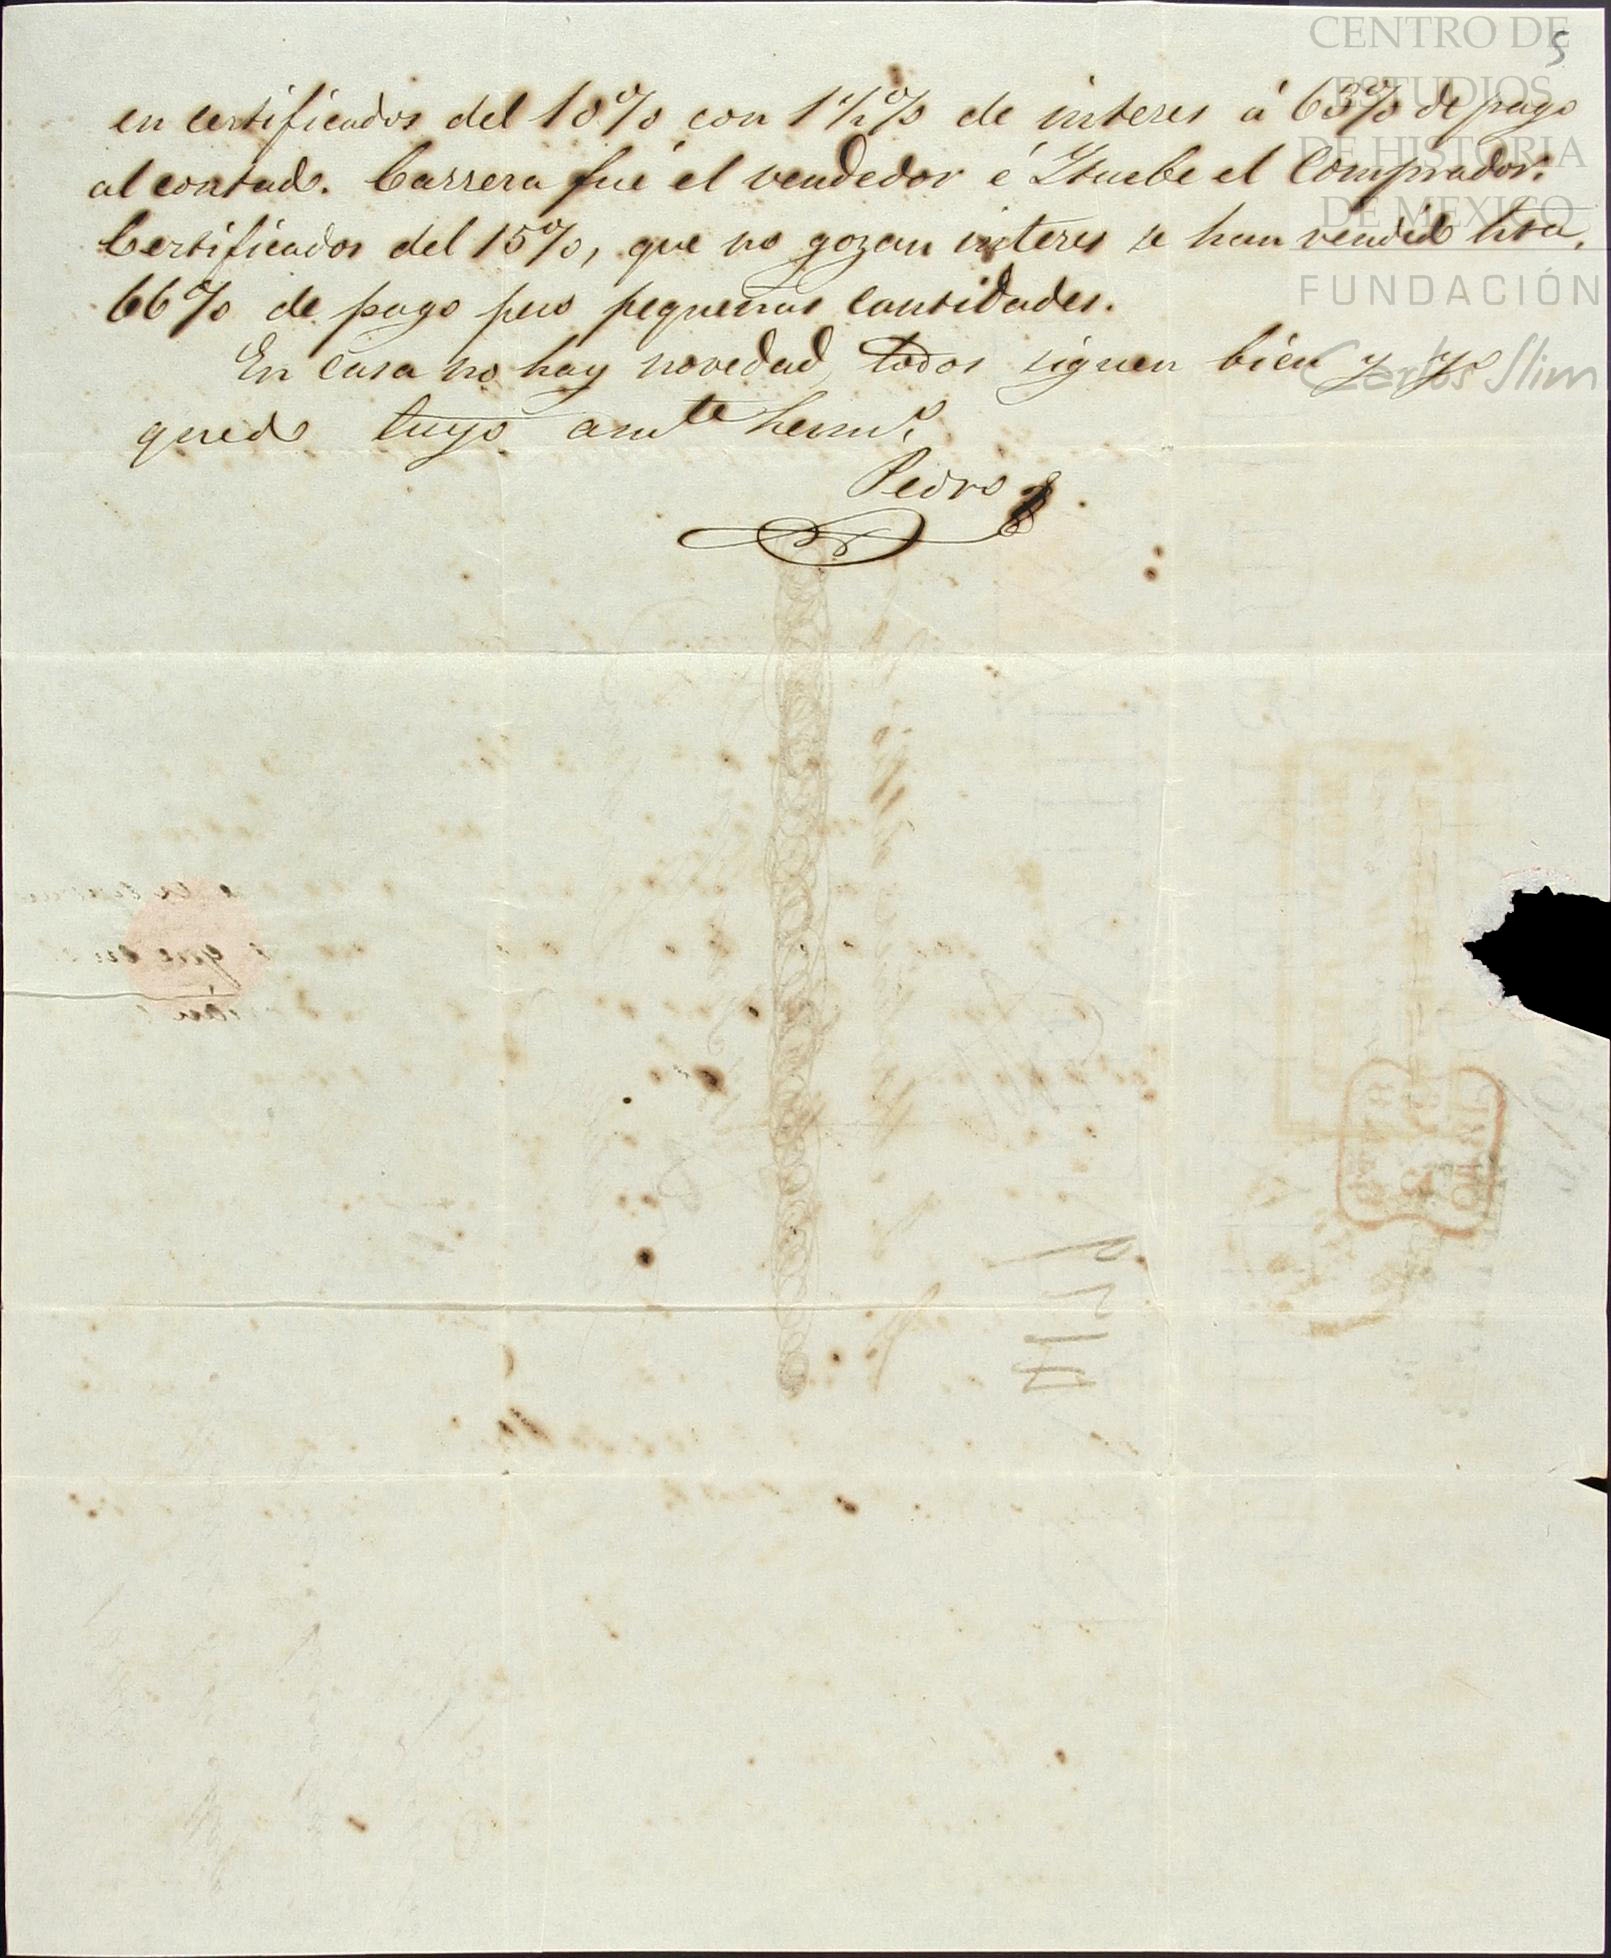 CENTRO DE
ESTUDIOS
DE HISTORIA
DE MEXICO
FUNDACIÓN
Carlos Slim
5
en certificados del 10% con 1½% de interes á 63% de pago
al contado. Carrera fué el vendedor é Yturbe el Comprador.
Certificados del 15%, que no gozan interes se han vendido hta.
66% de pago pero pequeñas cantidades.
En casa no hay novedad, todos siguen bien y yo
quedo tuyo amte hermo.
Pedro